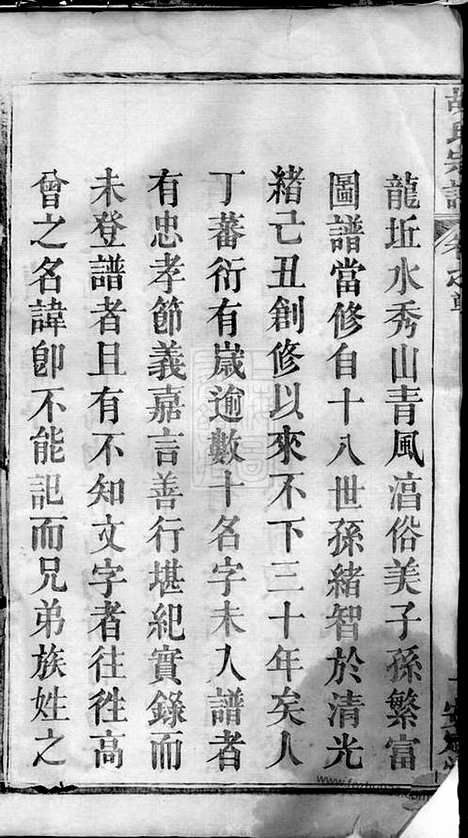 龍坵水秀山青風湻俗美子孫繁富
圖譜當修自十八世孫緒智於清光
緒己丑創修以來不下三十年矣人
丁蕃衍有歲逾數十名字未入譜者
有忠孝節義嘉言善行堪紀實錄而
未登譜者且有不知文字者往徃高
曾之名諱卽不能記而兄弟族姓之